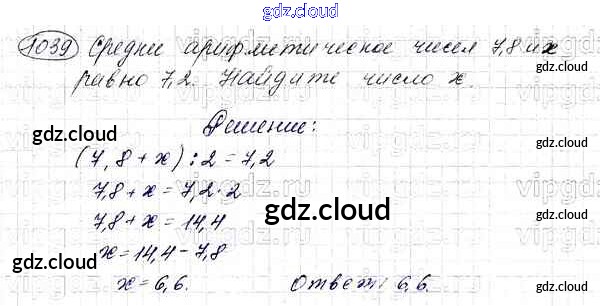 gdz.cloud
1039 Среднее арифметическое чисел 7,8 и x
равно 7,2. Найдите число x.
gdz.cloud
gdz.cloud
Решение:
gdz.cloud
(7,8 + x) : 2 = 7,2
7,8 + x = 7,2 · 2
gdz.cloud
7,8 + x = 14,4
x = 14,4 - 7,8
gdz.cloud
gdz.cloud
x = 6,6. Ответ: 6,6.